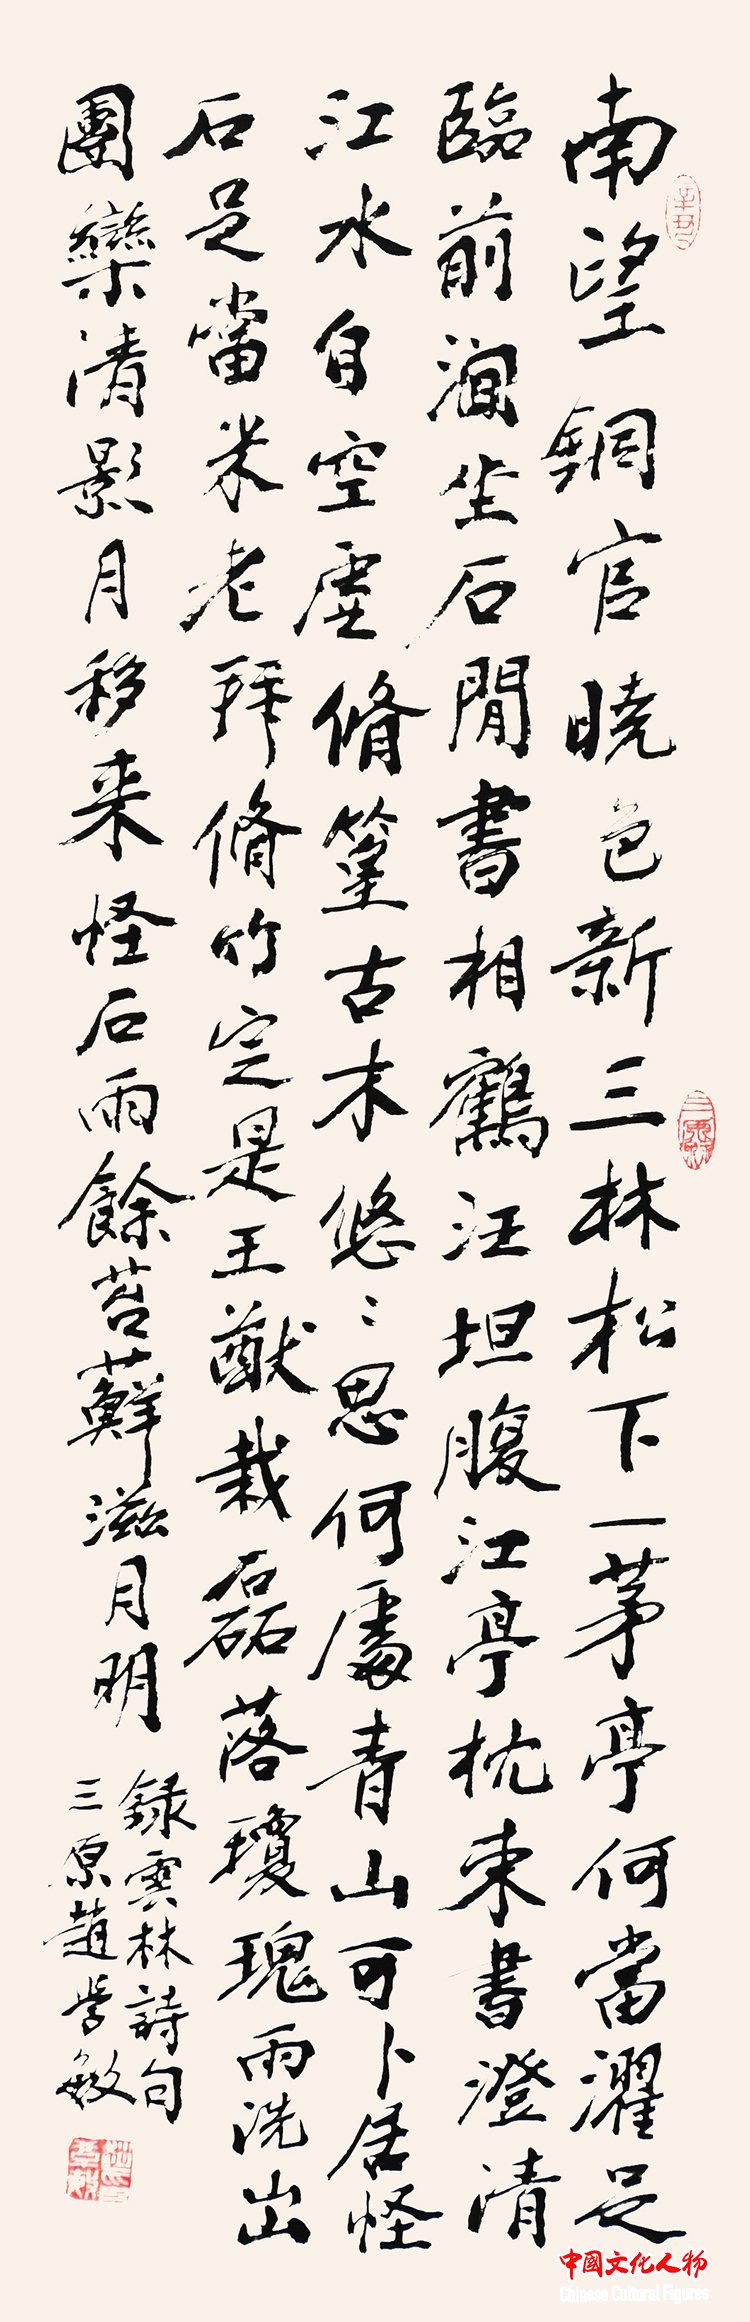 南望銅官曉色新三林松下一茅亭何當濯足
臨前澗坐石閒書相鶴汪坦腹江亭枕束書澄清
江水自空虛脩篁古木悠〻思何處青山可卜居怪
石足當米老拜脩竹定是王猷栽磊落瓊瑰雨洗出
團欒清影月移来怪石雨餘苔蘚滋月明
録雲林詩句
三原趙学敏
辛丑
中國文化人物
Chinese Cultural Figures